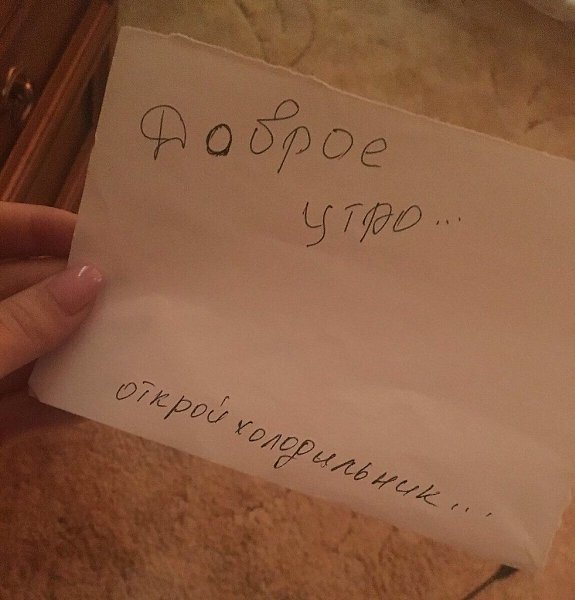 Доброе
утро...
открой холодильник...